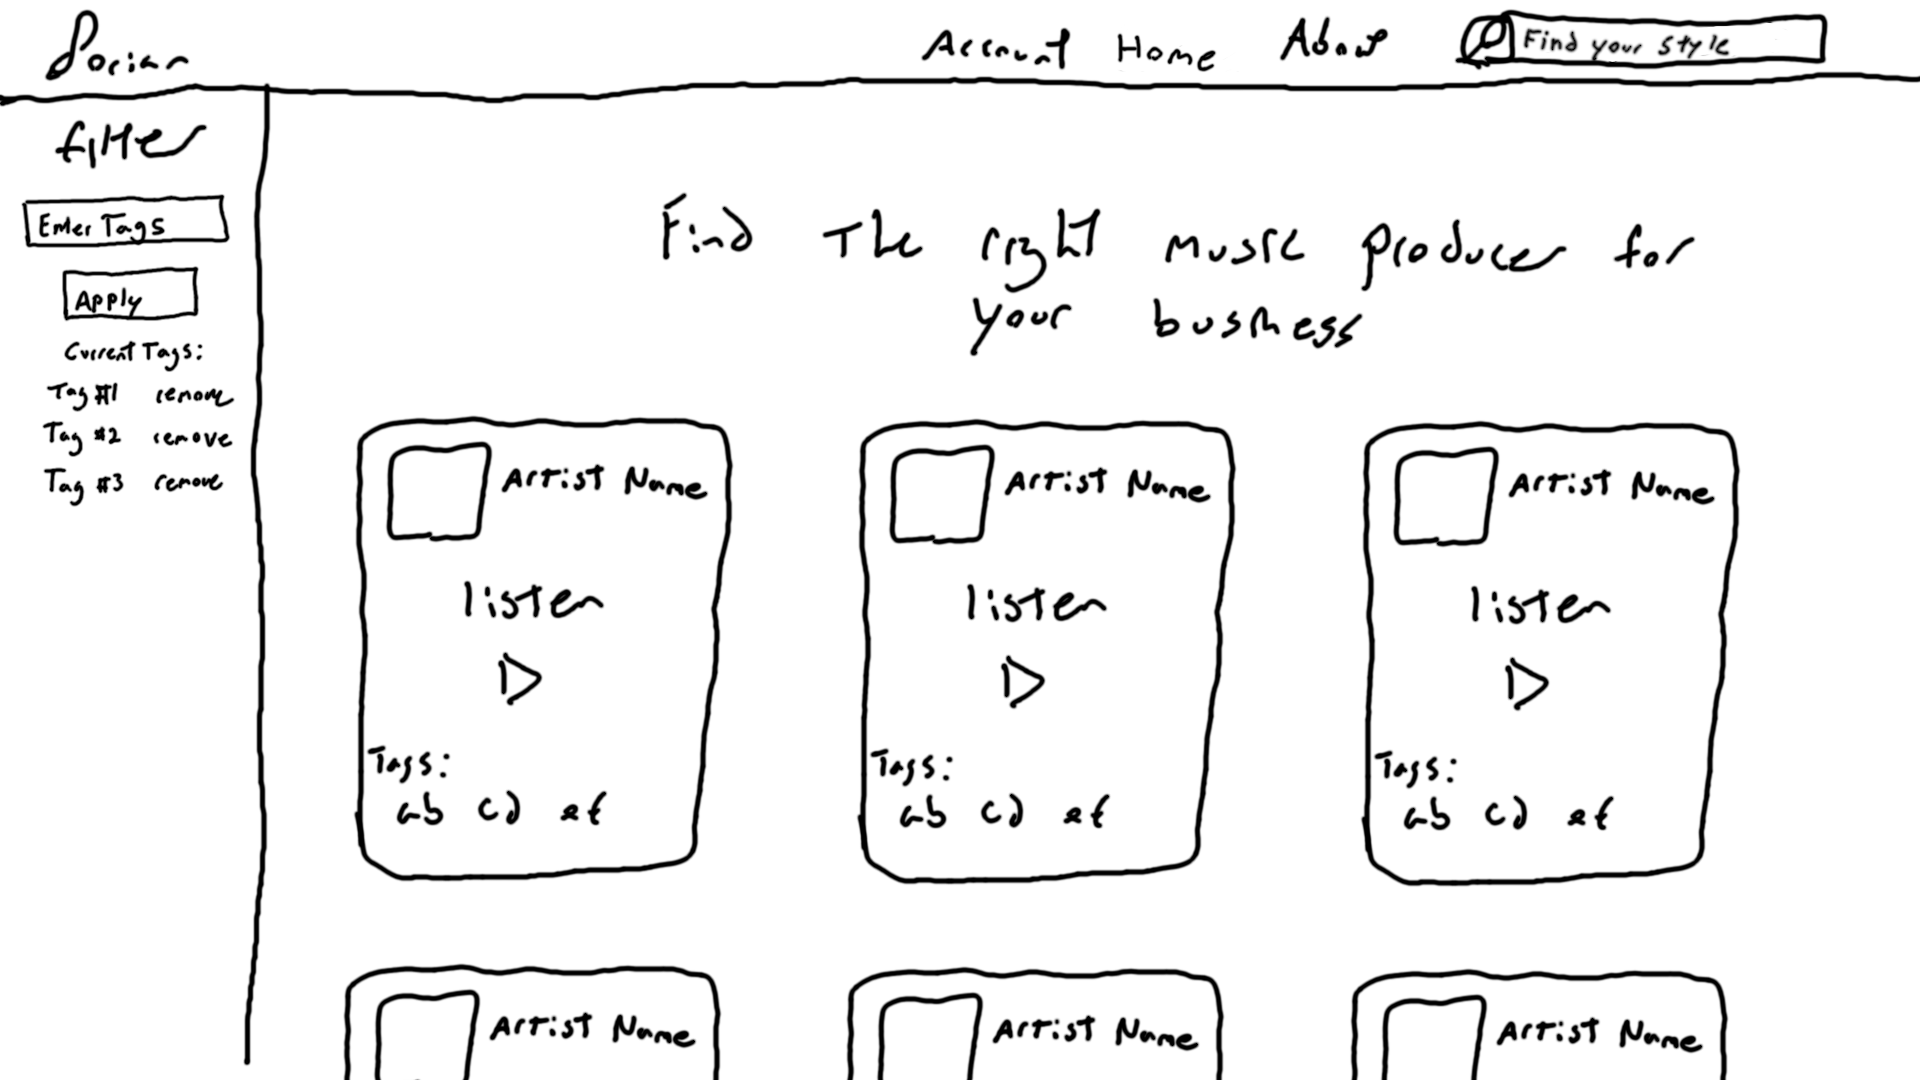 Dorian
Account Home About Find your style
filter
Enter Tags
Apply
Current Tags:
Tag #1 remove
Tag #2 remove
Tag #3 remove
Find The right music producer for
your business
Artist Name
listen
Tags:
ab cd ef
Artist Name
listen
Tags:
ab cd ef
Artist Name
listen
Tags:
ab cd ef
Artist Name
Artist Name
Artist Name